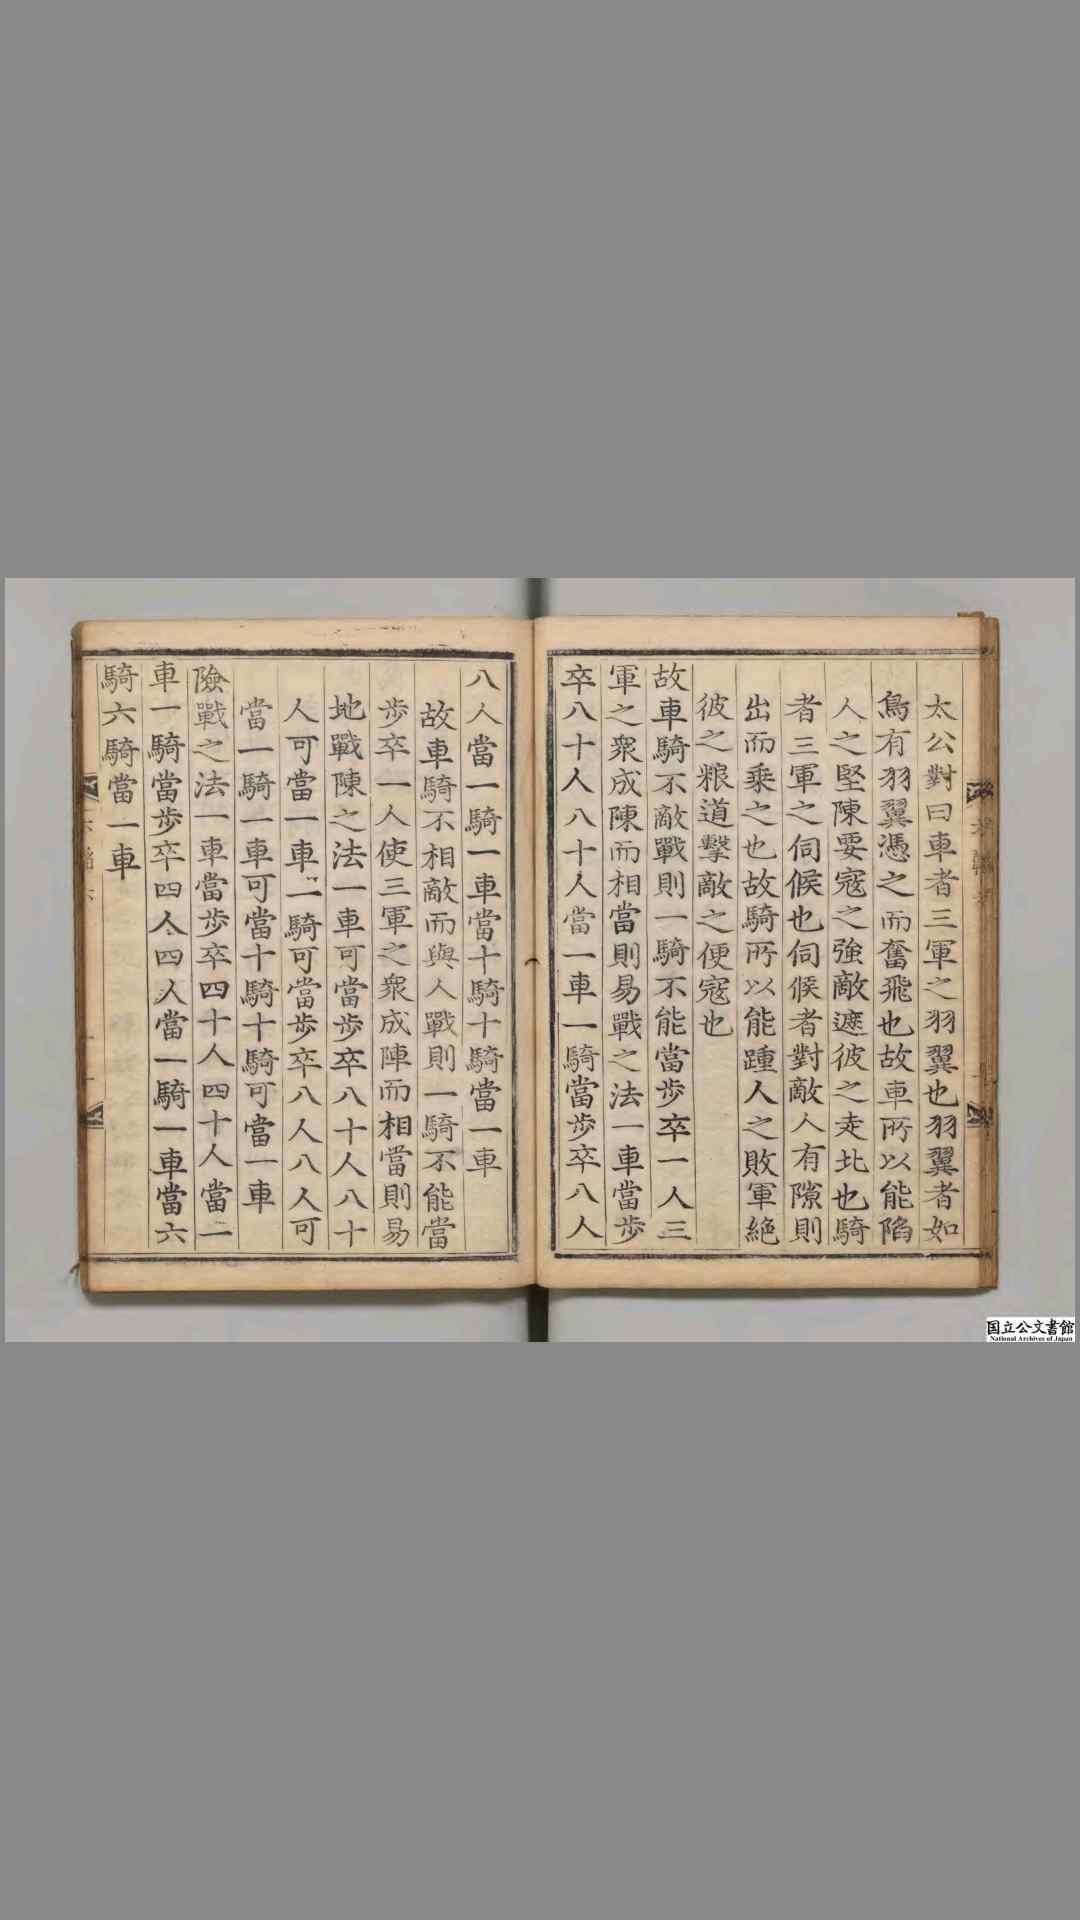 太公對曰車者三軍之羽翼也羽翼者如
鳥有羽翼憑之而奮飛也故車所以能陷
人之堅陳要寇之強敵遮彼之走北也騎
者三軍之伺候也伺候者對敵人有隙則
出而乗之也故騎所以能踵人之敗軍絶
彼之粮道擊敵之便寇也
故車騎不敵戰則一騎不能當歩卒一人三
軍之衆成陳而相當則易戰之法一車當歩
卒八十人八十人當一車一騎當歩卒八人
八人當一騎一車當十騎十騎當一車
故車騎不相敵而與人戰則一騎不能當
歩卒一人使三軍之衆成陣而相當則易
地戰陳之法一車可當歩卒八十人八十
人可當一車一騎可當歩卒八人八人可
當一騎一車可當十騎十騎可當一車
險戰之法一車當歩卒四十人四十人當一
車一騎當歩卒四人四人當一騎一車當六
騎六騎當一車
国立公文書館
National Archives of Japan